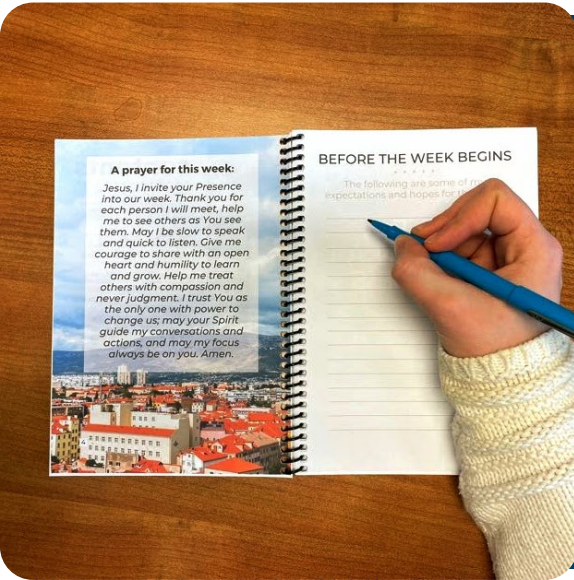 A prayer for this week:
Jesus, I invite your Presence
into our week. Thank you for
each person I will meet, help
me to see others as You see
them. May I be slow to speak
and quick to listen. Give me
courage to share with an open
heart and humility to learn
and grow. Help me treat
others with compassion and
never judgment. I trust You as
the only one with power to
change us; may your Spirit
guide my conversations and
actions, and may my focus
always be on you. Amen.
4
BEFORE THE WEEK BEGINS
The following are some of my
expectations and hopes for